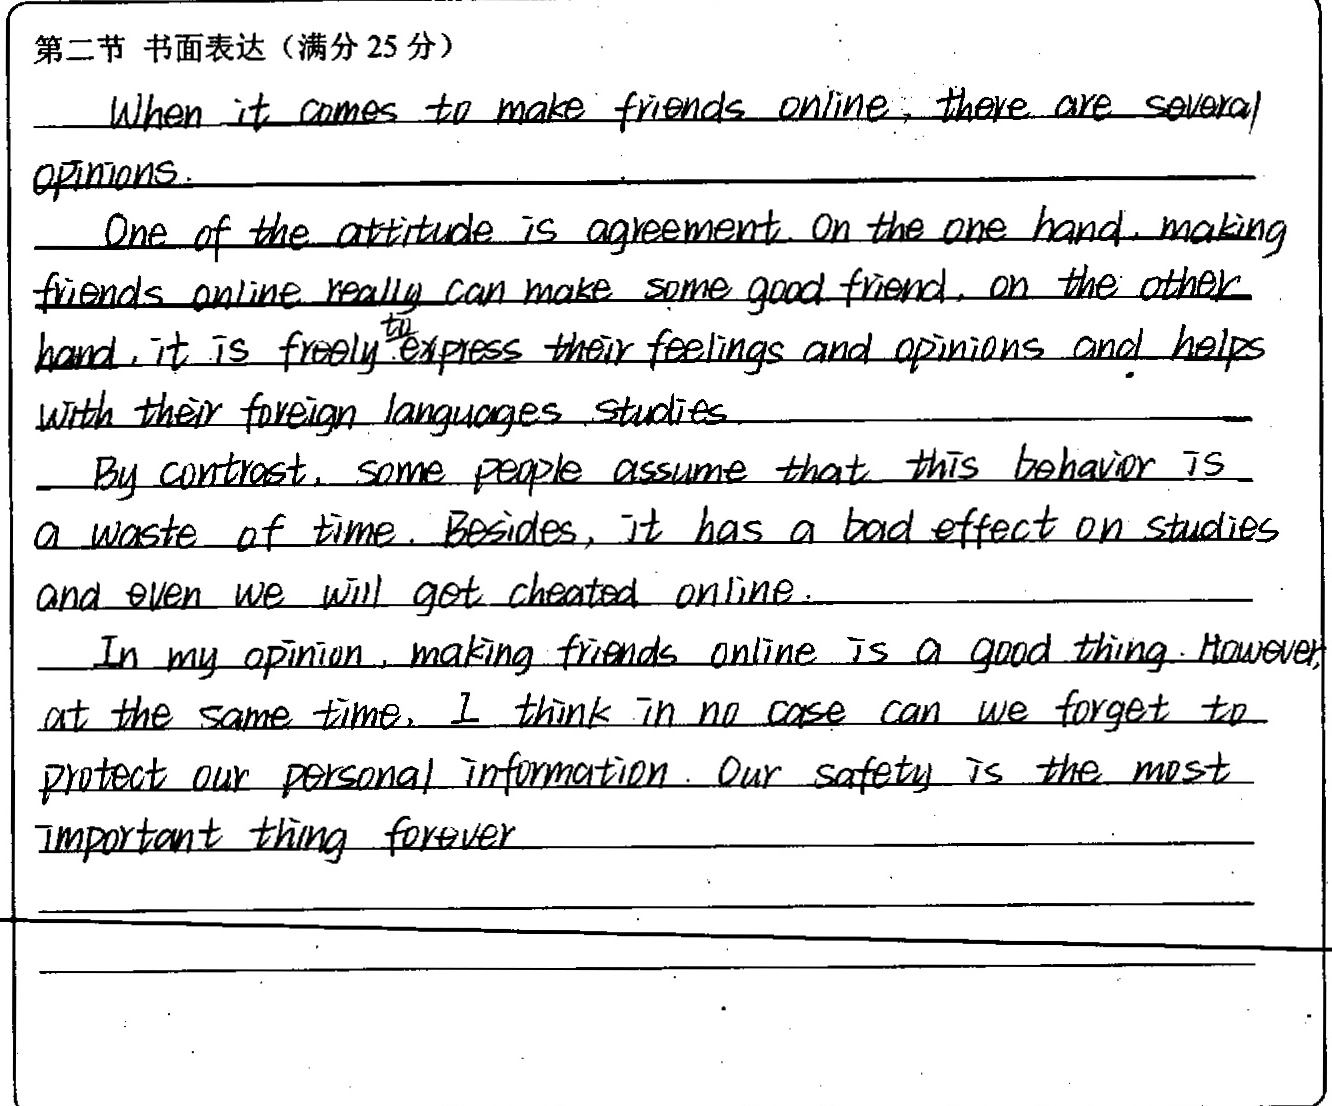 第二节 书面表达（满分 25 分）
When it comes to make friends online, there are several
opinions.
One of the attitude is agreement. On the one hand, making
friends online really can make some good friend, on the other
hand, it is freely to express their feelings and opinions and helps
with their foreign languages studies.
By contrast, some people assume that this behavior is
a waste of time. Besides, it has a bad effect on studies
and even we will get cheated online.
In my opinion, making friends online is a good thing. However,
at the same time, I think in no case can we forget to
protect our personal information. Our safety is the most
important thing forever